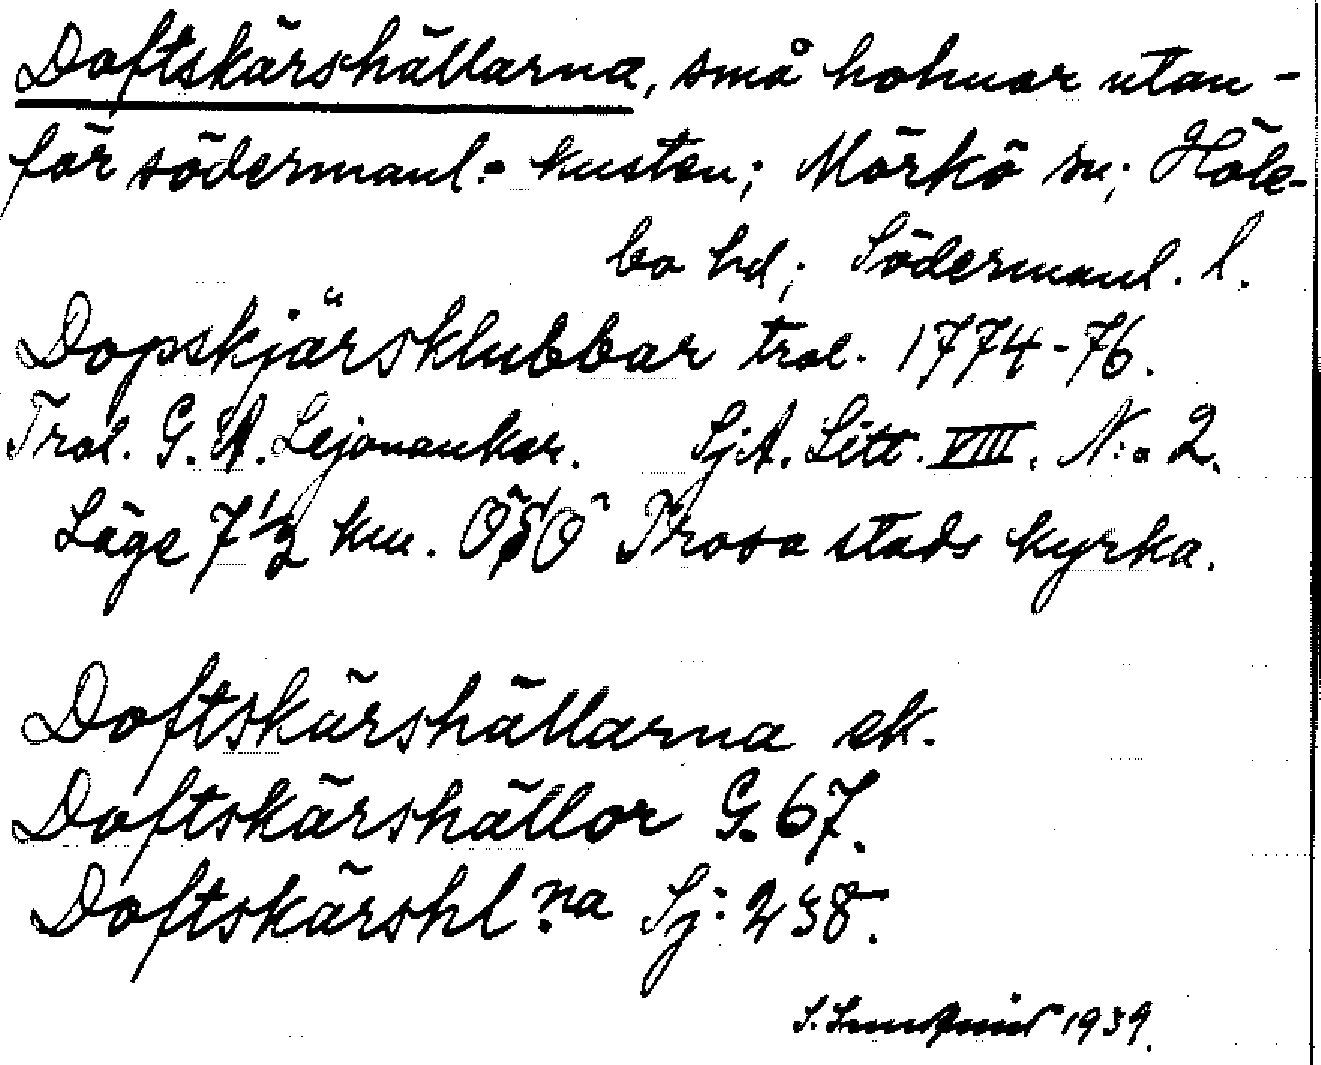 Doftskärshällarna, små holmar utan-
för södermanl.- kusten; Mörkö sn; Höle-
bo hd; Södermanl. l.
Dopskjärsklubbar trol. 1774-76.
Trol. G. A. Lejonanker. SjA. Litt. VIII. N:o 2.
Läge 7 1/2 km. OSO Trosa stads kyrka.
Doftskärshällarna ek.
Doftskärshällor G. 67.
Doftskärshl.na Sj: 238.
S. 1939.